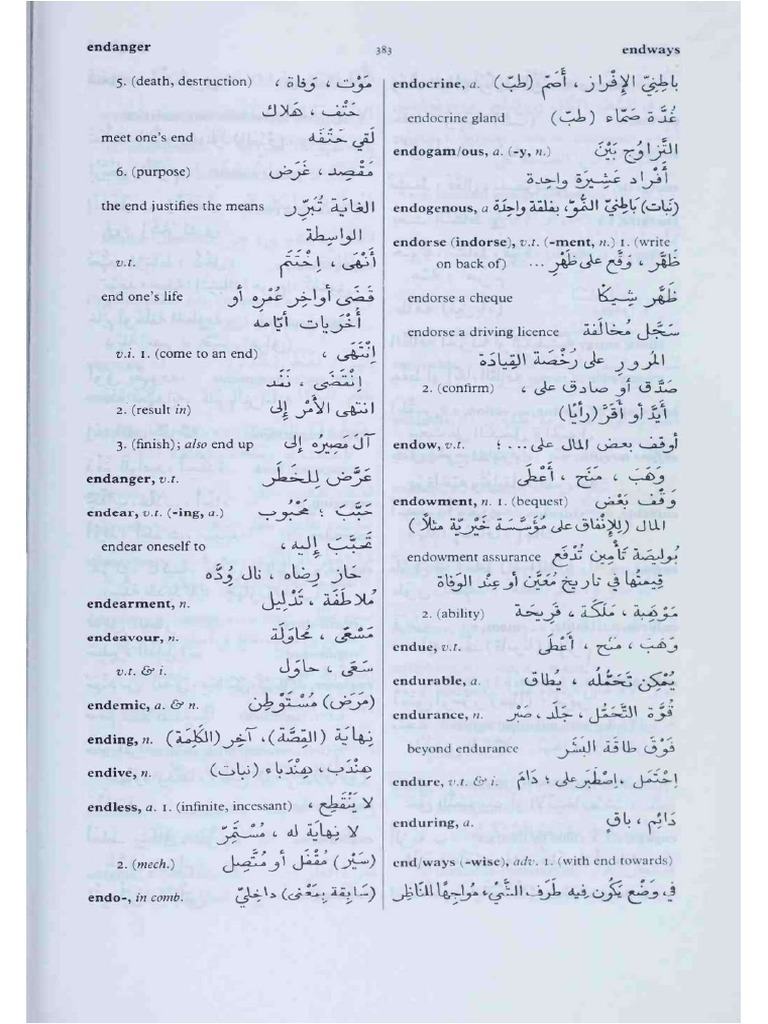 endanger 383 endways
5. (death, destruction) مَوْت ، وَفاة ،
حَتْف ، هَلاك
meet one's end لَقِيَ حَتْفَه
6. (purpose) مَقْصِد ، غَرَض
the end justifies the means الغايَة تُبَرِّر
الواسِطة
v.t. أَنْهَى ، اِخْتَتَمَ
end one's life قَضَى أَواخِر عُمْرِه أو
أُخْرَيات أيّامه
v.i. 1. (come to an end) اِنْتَهَى ،
اِنْقَضَى ، نَفَد
2. (result in) انتهى الأَمْر إلى
3. (finish); also end up آلَ مَصِيرُه إلى
endanger, v.t. عَرَّض لِلخَطَر
endear, v.t. (-ing, a.) حَبَّبَ ؛ مَحْبُوب
endear oneself to تَحَبَّبَ إلَيه ،
حازَ رِضاه ، نال وُدَّه
endearment, n. مُلاطَفَة ، تَدْلِيل
endeavour, n. مَسْعَى ، مُحاوَلة
v.t. & i. سَعَى ، حاوَل
endemic, a. & n. (مَرَض) مُسْتَوْطِن
ending, n. نِهاية (القِصّة)، آخِر (الكَلِمَة)
endive, n. هِنْدَب، هِنْدَباء (نبات)
endless, a. 1. (infinite, incessant) لا يَنْقَطِع ،
لا نِهاية له ، مُسْتَمِرّ
2. (mech.) (سَيْر) مُقْفَل أو مُتَّصِل
endo-, in comb. (سَابِقة بِمَعْنى) داخِلِيّ
endocrine, a. باطِنِيّ الإفْراز ، أَصَمّ (طبّ)
endocrine gland غُدَّة صَمّاء (طبّ)
endogam/ous, a. (-y, n.) التَّزاوُج بَيْنَ
أَفْراد عَشِيرَة واحِدة
endogenous, a (نبات) باطِنِيّ النُّموّ، بفلقة واحِدَة
endorse (indorse), v.t. (-ment, n.) 1. (write
on back of) ظَهَّر ، وَقَّع على ظَهْر ...
endorse a cheque ظَهَّر شِيكًا
endorse a driving licence سَجَّل مُخالَفة
المُرور على رُخْصَة القِيادَة
2. (confirm) صَدَّق أو صادَق على ... ؛
أَيَّد أو أَقَرَّ (رَأْيًا)
endow, v.t. أوقف بعض المال على ... ؛
وَهَبَ ، مَنَح ، أَعْطَى
endowment, n. 1. (bequest) وَقْف بَعْض
المال (للإنْفاق على مُؤَسَّسَة خَيْرِيّة مثلاً)
endowment assurance بُولِيصَة تَأْمِين تُدْفَع
قِيمَتُها في تاريخ مُعَيَّن أو عِنْد الوَفاة
2. (ability) مَوْهِبة ، مَلَكَة ، قَرِيحَة
endue, v.t. وَهَبَ ، مَنَح ، أَعْطَى
endurable, a. يُمْكِن تَحَمُّلُه ، يُطاق
endurance, n. قُوَّة التَّحَمُّل ، جَلَد ، صَبْر
beyond endurance فَوْقَ طاقَة البَشَر
endure, v.t. & i. اِحْتَمَل، اِصْطَبَر على ؛ دَامَ
enduring, a. دائِم ، باقٍ
end/ways (-wise), adv. 1. (with end towards)
في وَضْع يَكُون فيه طَرَف الشَّيْء مُواجِهًا للنّاظِر